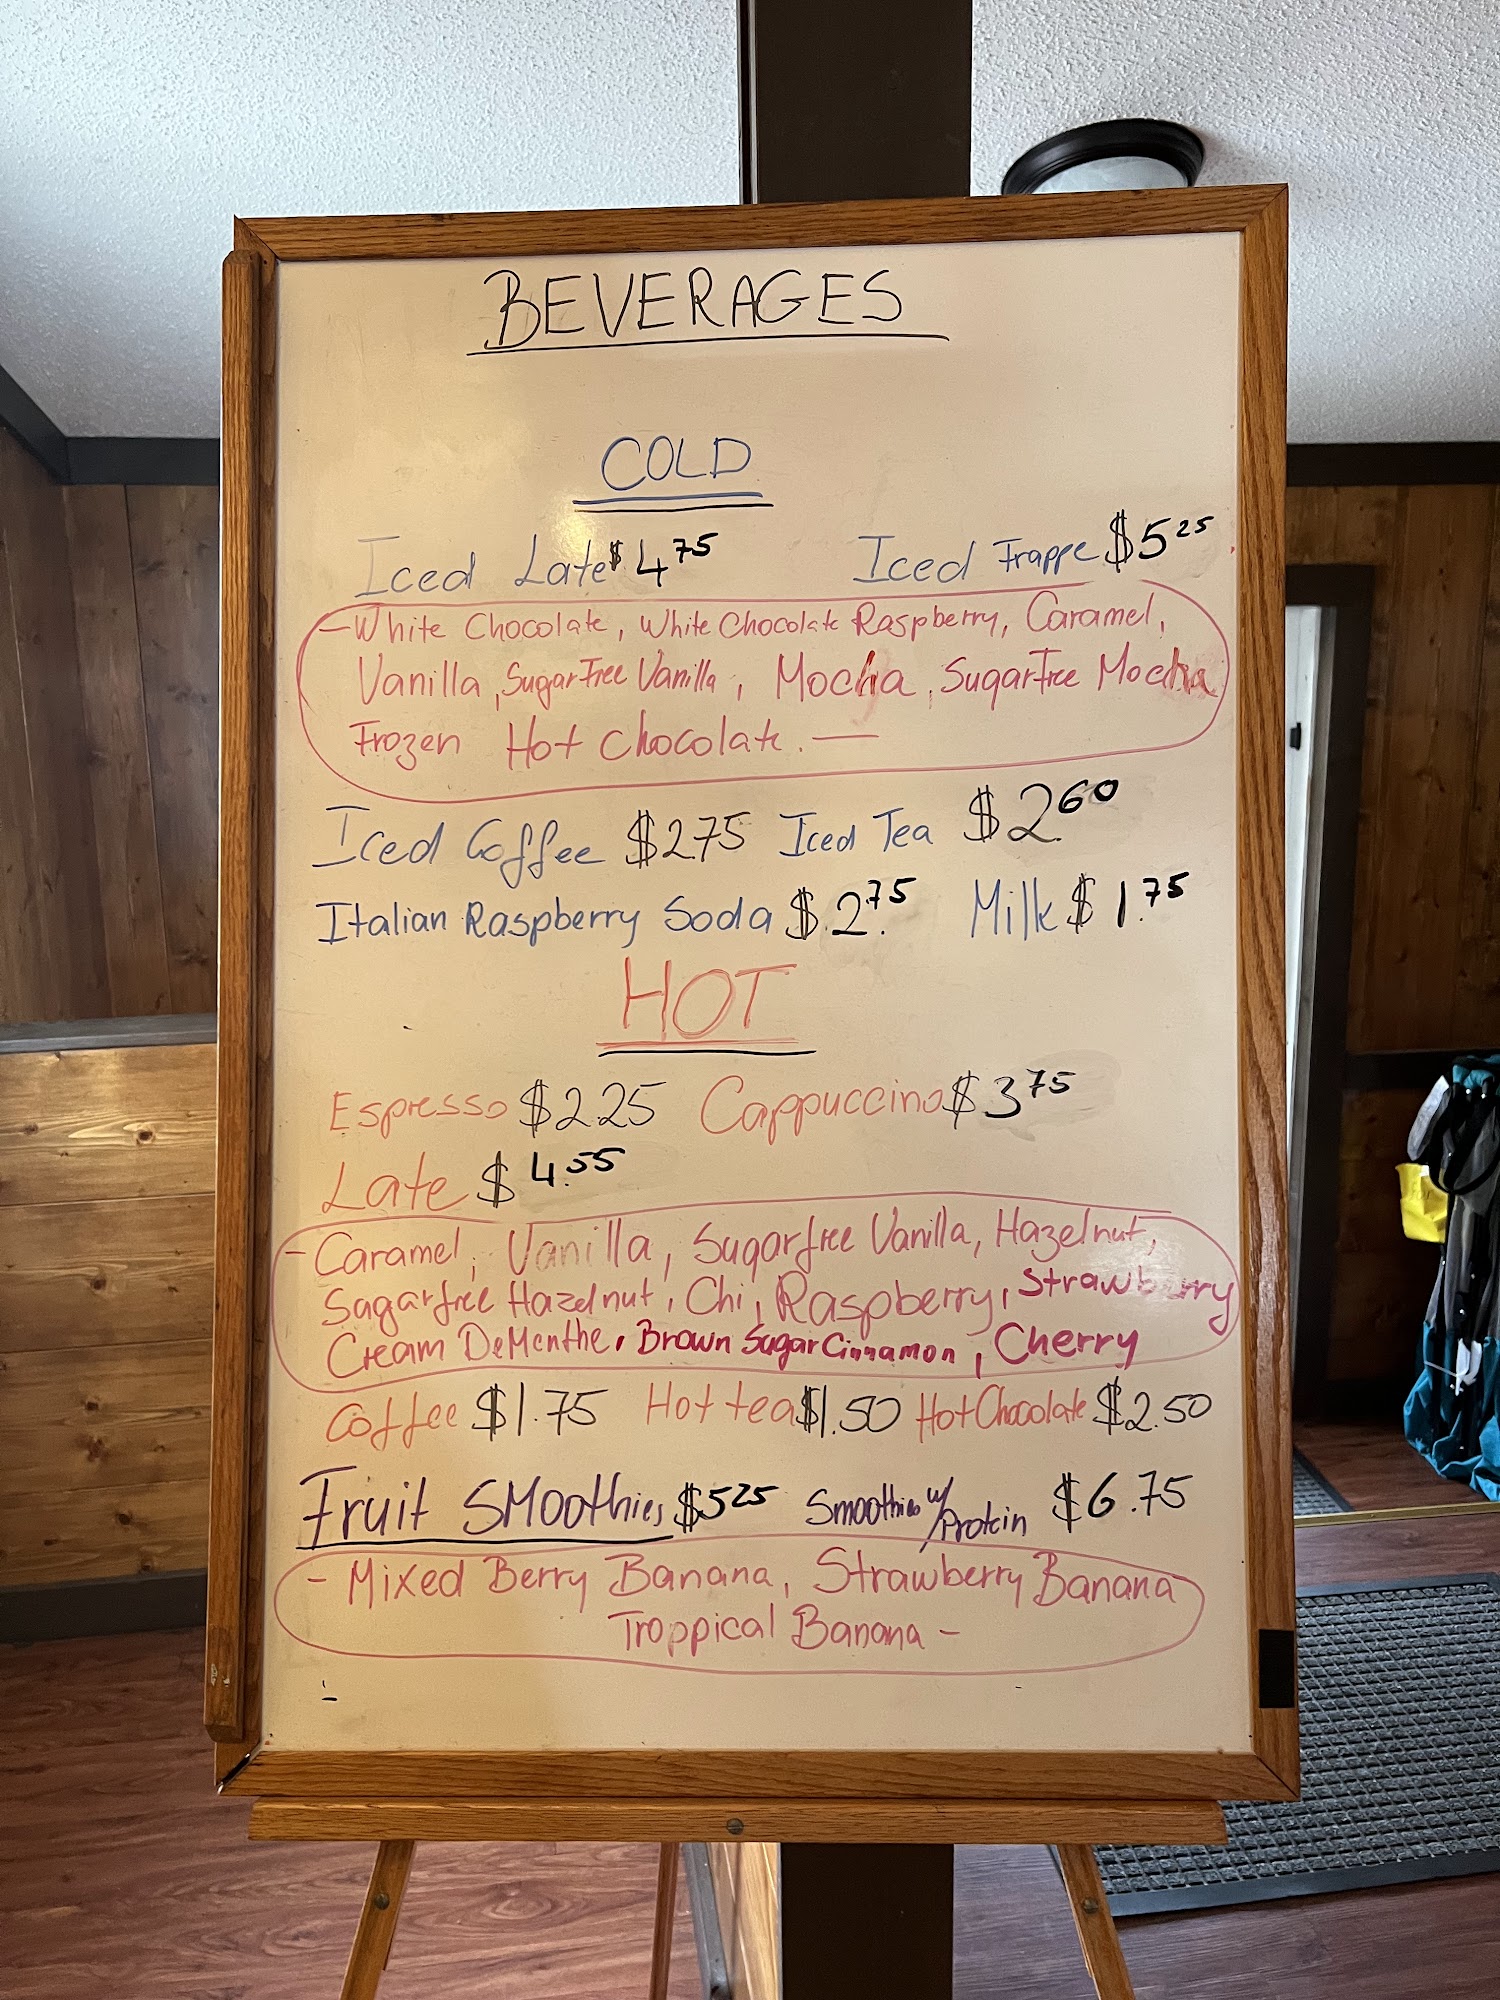 BEVERAGES
COLD
Iced Late $4.75 Iced Frappe $5.25
- White Chocolate, White Chocolate Raspberry, Caramel,
Vanilla, Sugar Free Vanilla, Mocha, Sugarfree Mocha
Frozen Hot Chocolate. —
Iced Coffee $2.75 Iced Tea $2.60
Italian Raspberry Soda $2.75 Milk $1.75
HOT
Espresso $2.25 Cappuccino $3.75
Late $4.55
- Caramel, Vanilla, Sugarfree Vanilla, Hazelnut,
Sagarfree Hazelnut, Chi, Raspberry, Strawberry
Cream DeMenthe, Brown Sugar Cinnamon, Cherry
Coffee $1.75 Hot tea $1.50 Hot Chocolate $2.50
Fruit Smoothies $5.25 Smoothies w/ Protein $6.75
- Mixed Berry Banana, Strawberry Banana
Troppical Banana -